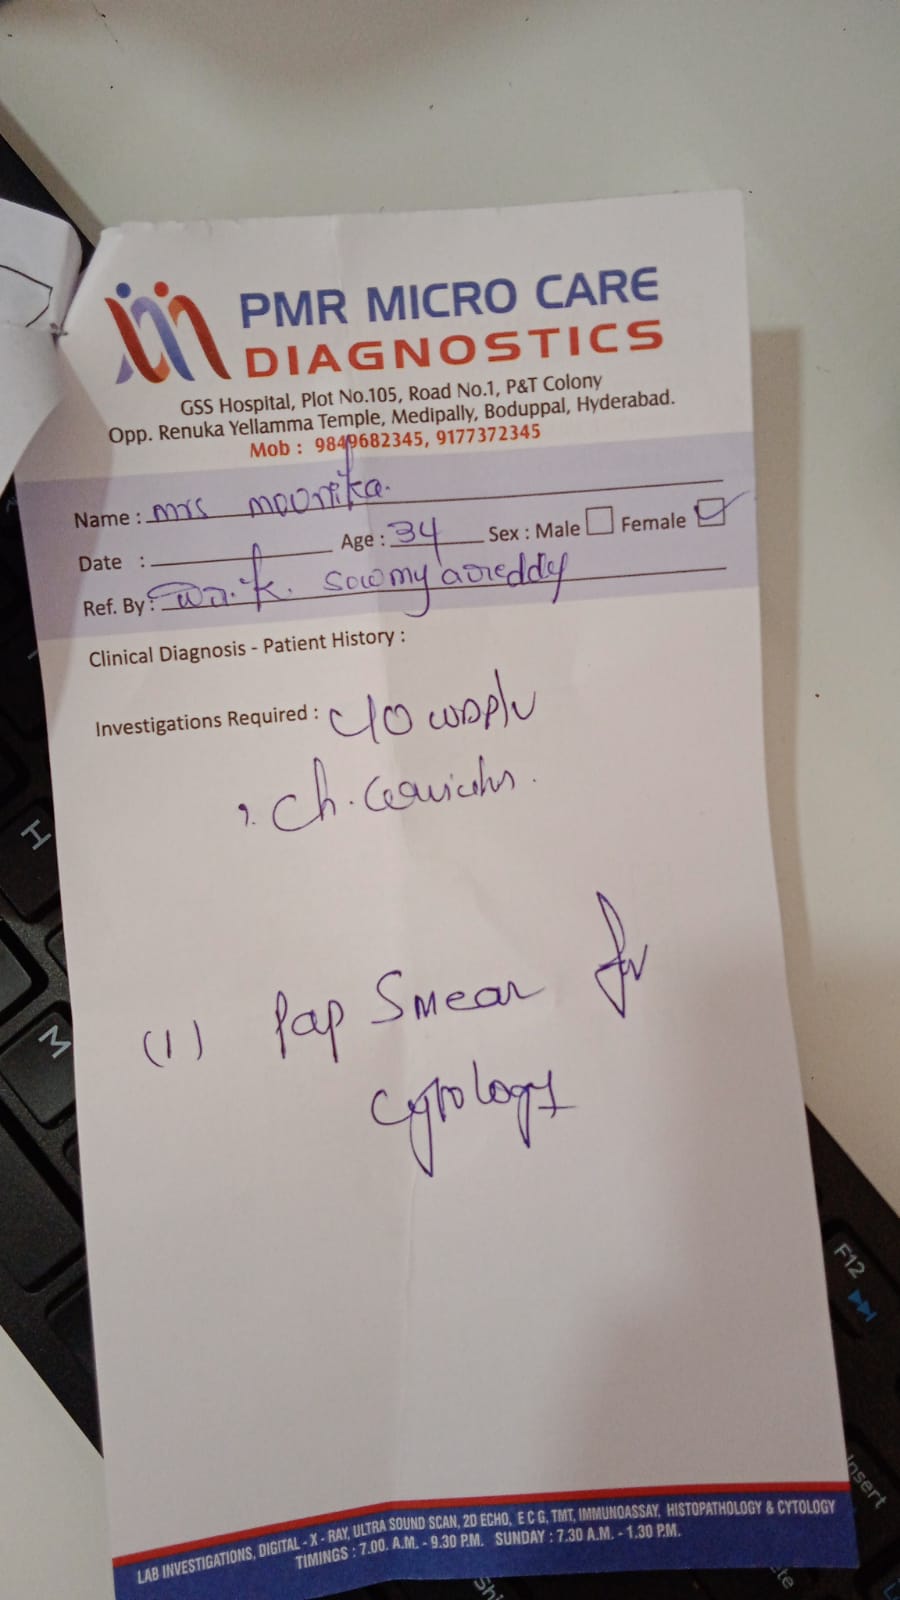 PMR MICRO CARE
DIAGNOSTICS
GSS Hospital, Plot No.105, Road No.1, P&T Colony
Opp. Renuka Yellamma Temple, Medipally, Boduppal, Hyderabad.
Mob : 9849682345, 9177372345
Name : mrs mounika.
Date : Age : 34 Sex : Male Female
Ref. By : Dr. K. Sowmya reddy
Clinical Diagnosis - Patient History :
Investigations Required : C/O WDP/V
Ch. Cervicitis.
(1) Pap Smear for
Cytology
LAB INVESTIGATIONS, DIGITAL - X - RAY, ULTRA SOUND SCAN, 2D ECHO, E C G, TMT, IMMUNOASSAY, HISTOPATHOLOGY & CYTOLOGY
TIMINGS : 7.00. A.M. - 9.30 P.M. SUNDAY : 7.30 A.M. - 1.30 P.M.
H
M
F12
Insert